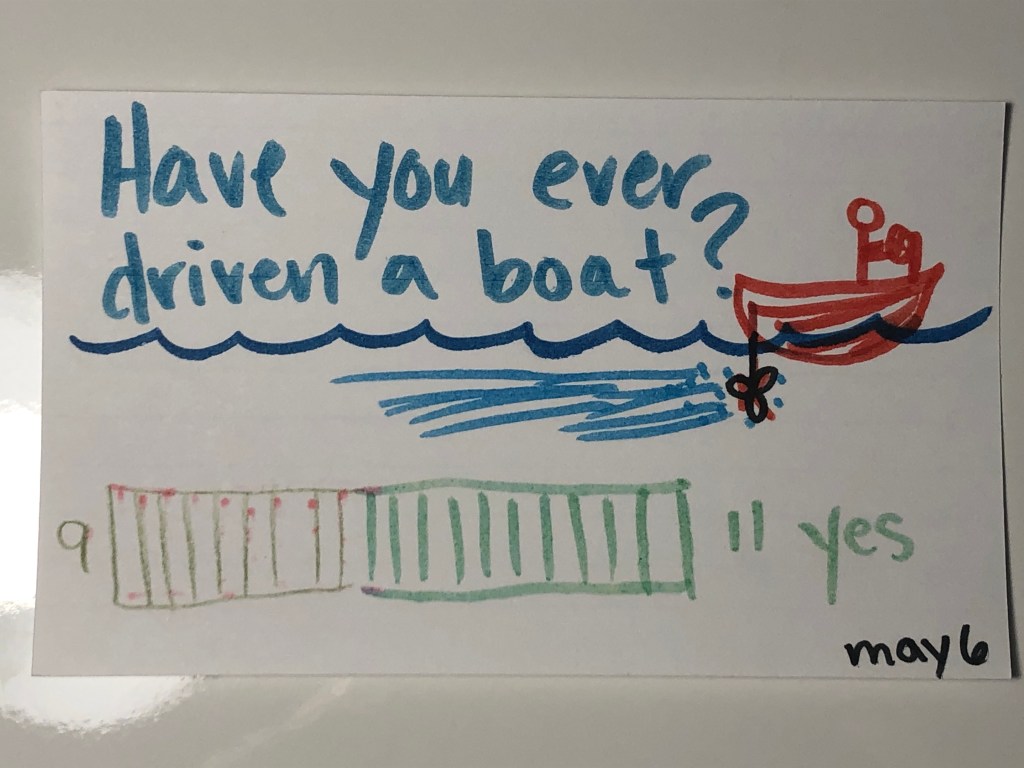 Have you ever
driven a boat?
9
11 yes
may 6